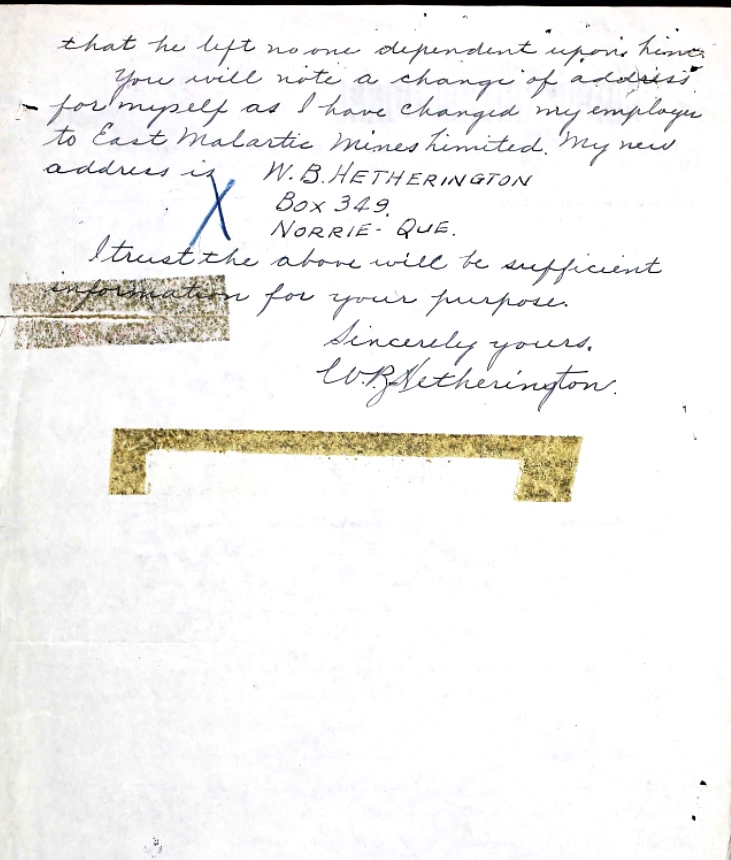 that he left no one dependent upon him.
You will note a change of address
for myself as I have changed my employer
to East Malartic Mines Limited. My new
address is W. B. HETHERINGTON
BOX 349.
NORRIE - QUE.
I trust the above will be sufficient
information for your purpose.
Sincerely yours,
W. B. Hetherington.